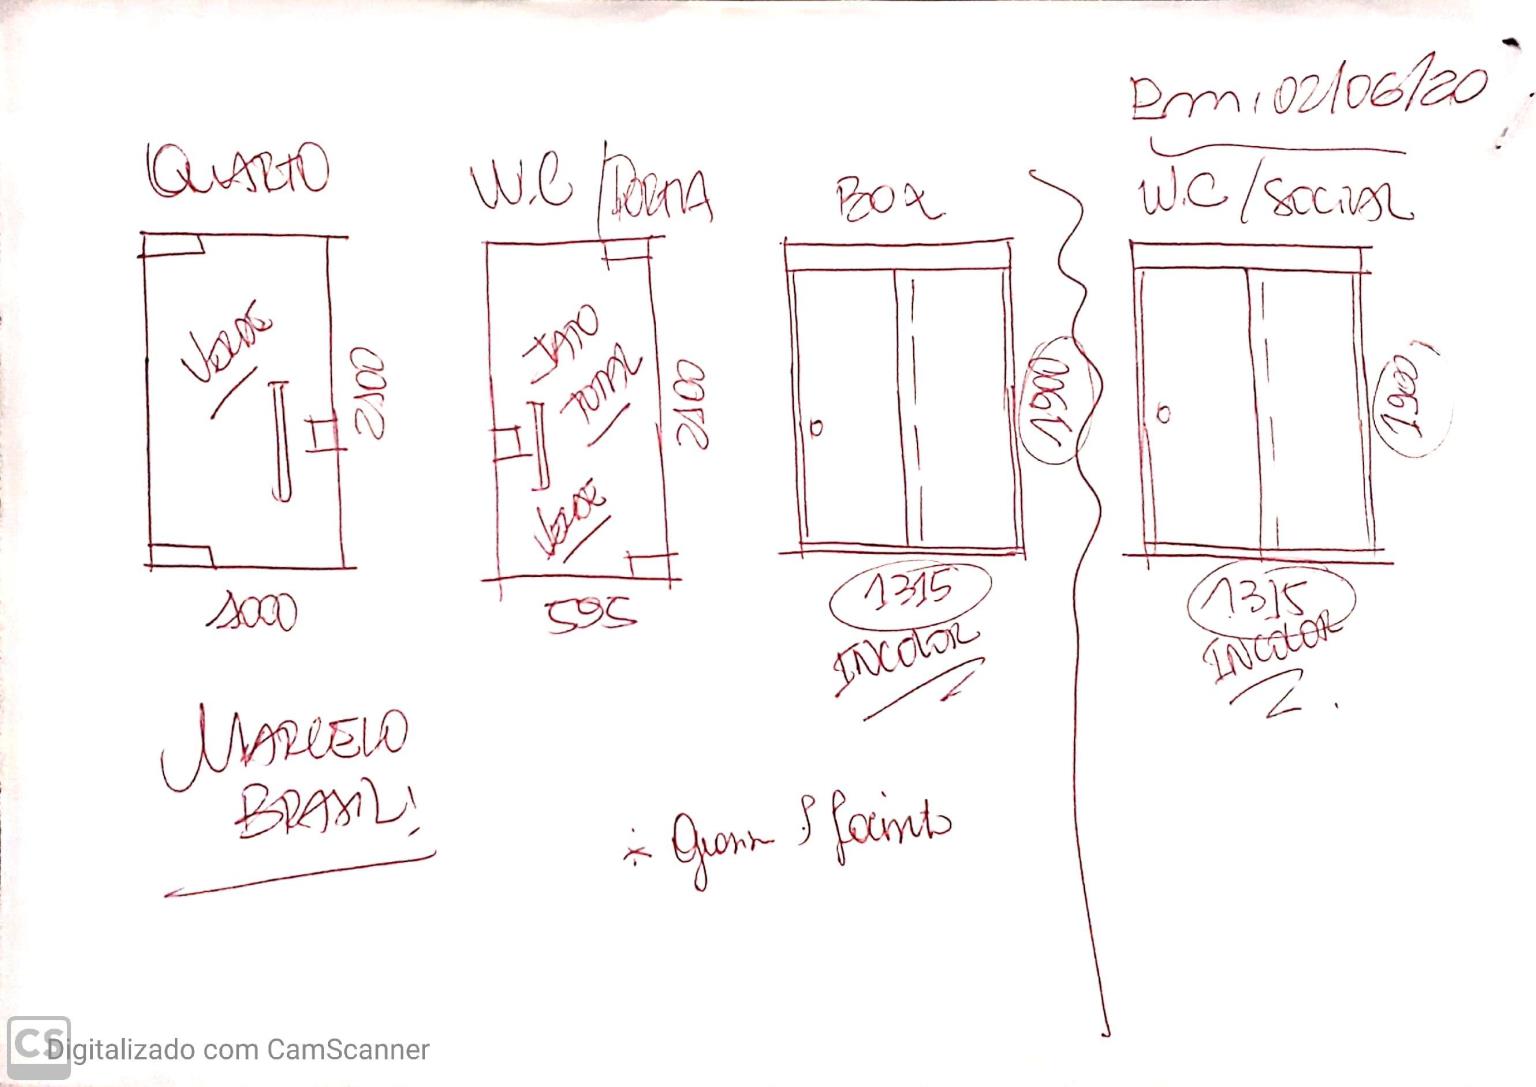 Em: 02/06/20
QUARTO
W.C / PORTA
BOX
W.C / SOCIAL
VERDE
2100
1000
JATO
TOTAL
VERDE
2100
595
1900
1315
INCOLOR
1900
1315
INCOLOR
MARCELO
BRASIL!
* S Jacinto
CS Digitalizado com CamScanner